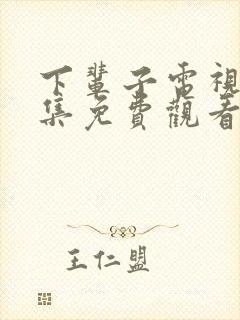 下輩子電視
集免費觀看
王仁盟